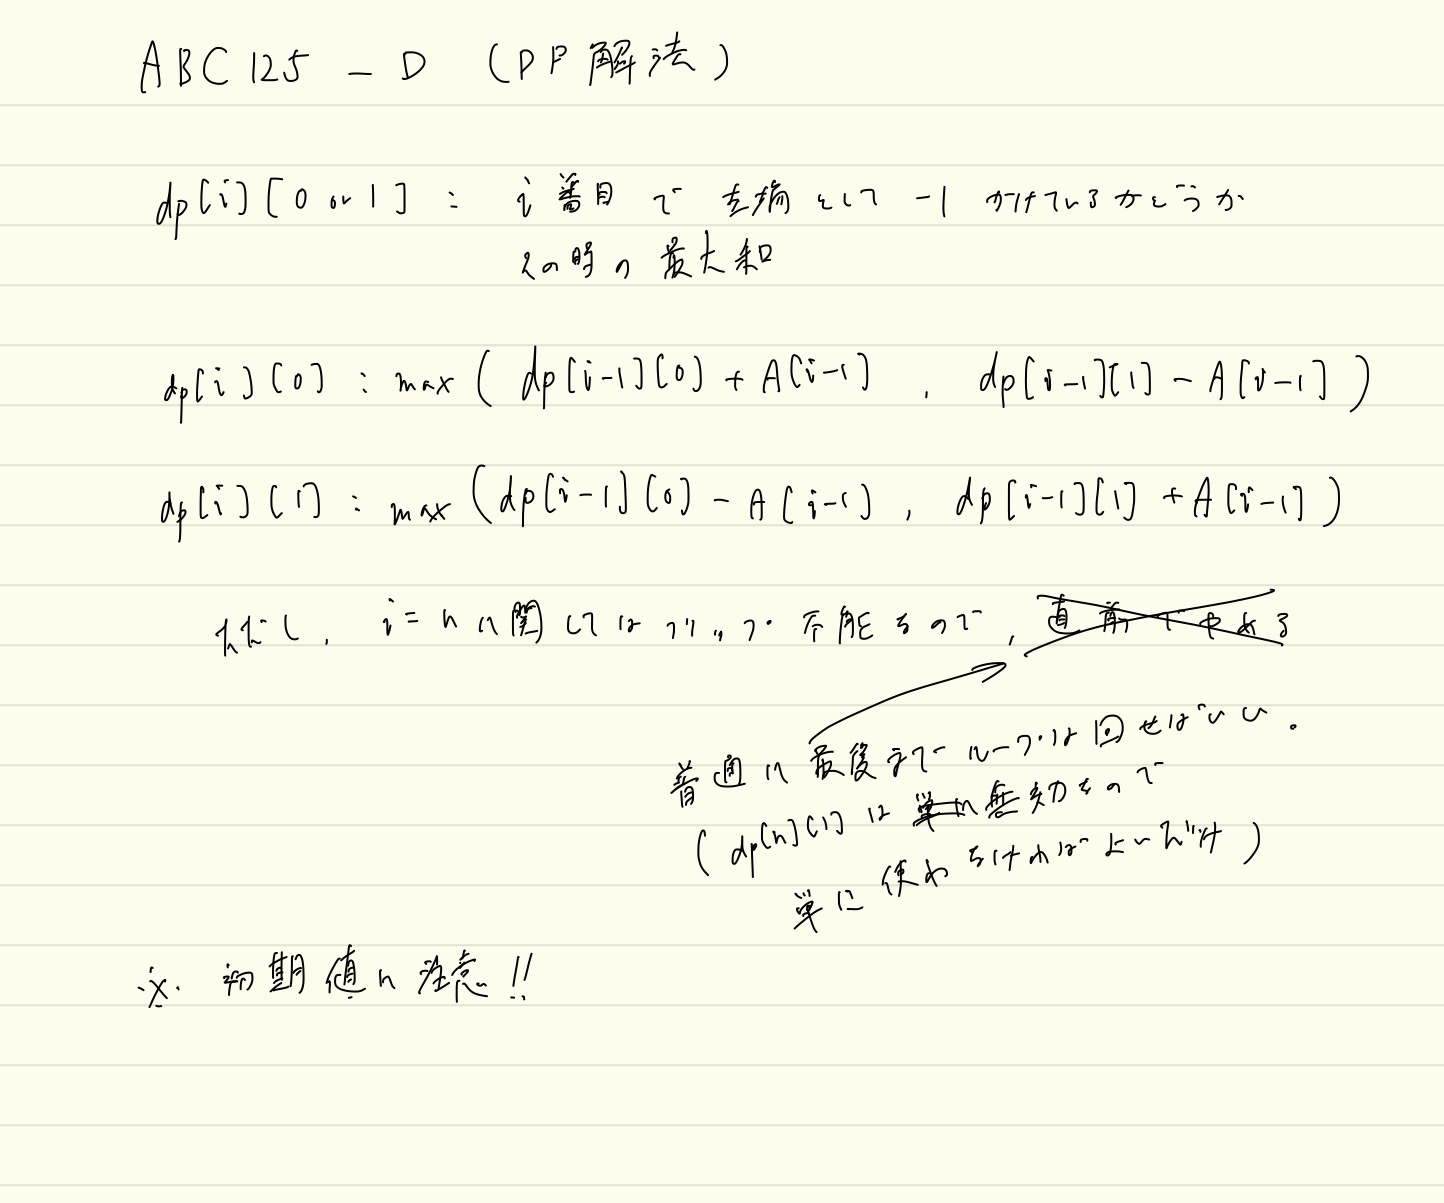 ABC125 - D (DP解法)
dp[i][0 or 1] : i番目で左端として -1 かけているかどうか
その時の最大和
dp[i][0] : max ( dp[i-1][0] + A[i-1] , dp[i-1][1] - A[i-1] )
dp[i][1] : max ( dp[i-1][0] - A[i-1] , dp[i-1][1] + A[i-1] )
ただし, i=nに関してはフリップ不能なので, 直前でやめる
普通に最後までループは回せばいい.
( dp[n][1] は単に無効なので
単に使わなければよいだけ )
※. 初期値に注意!!